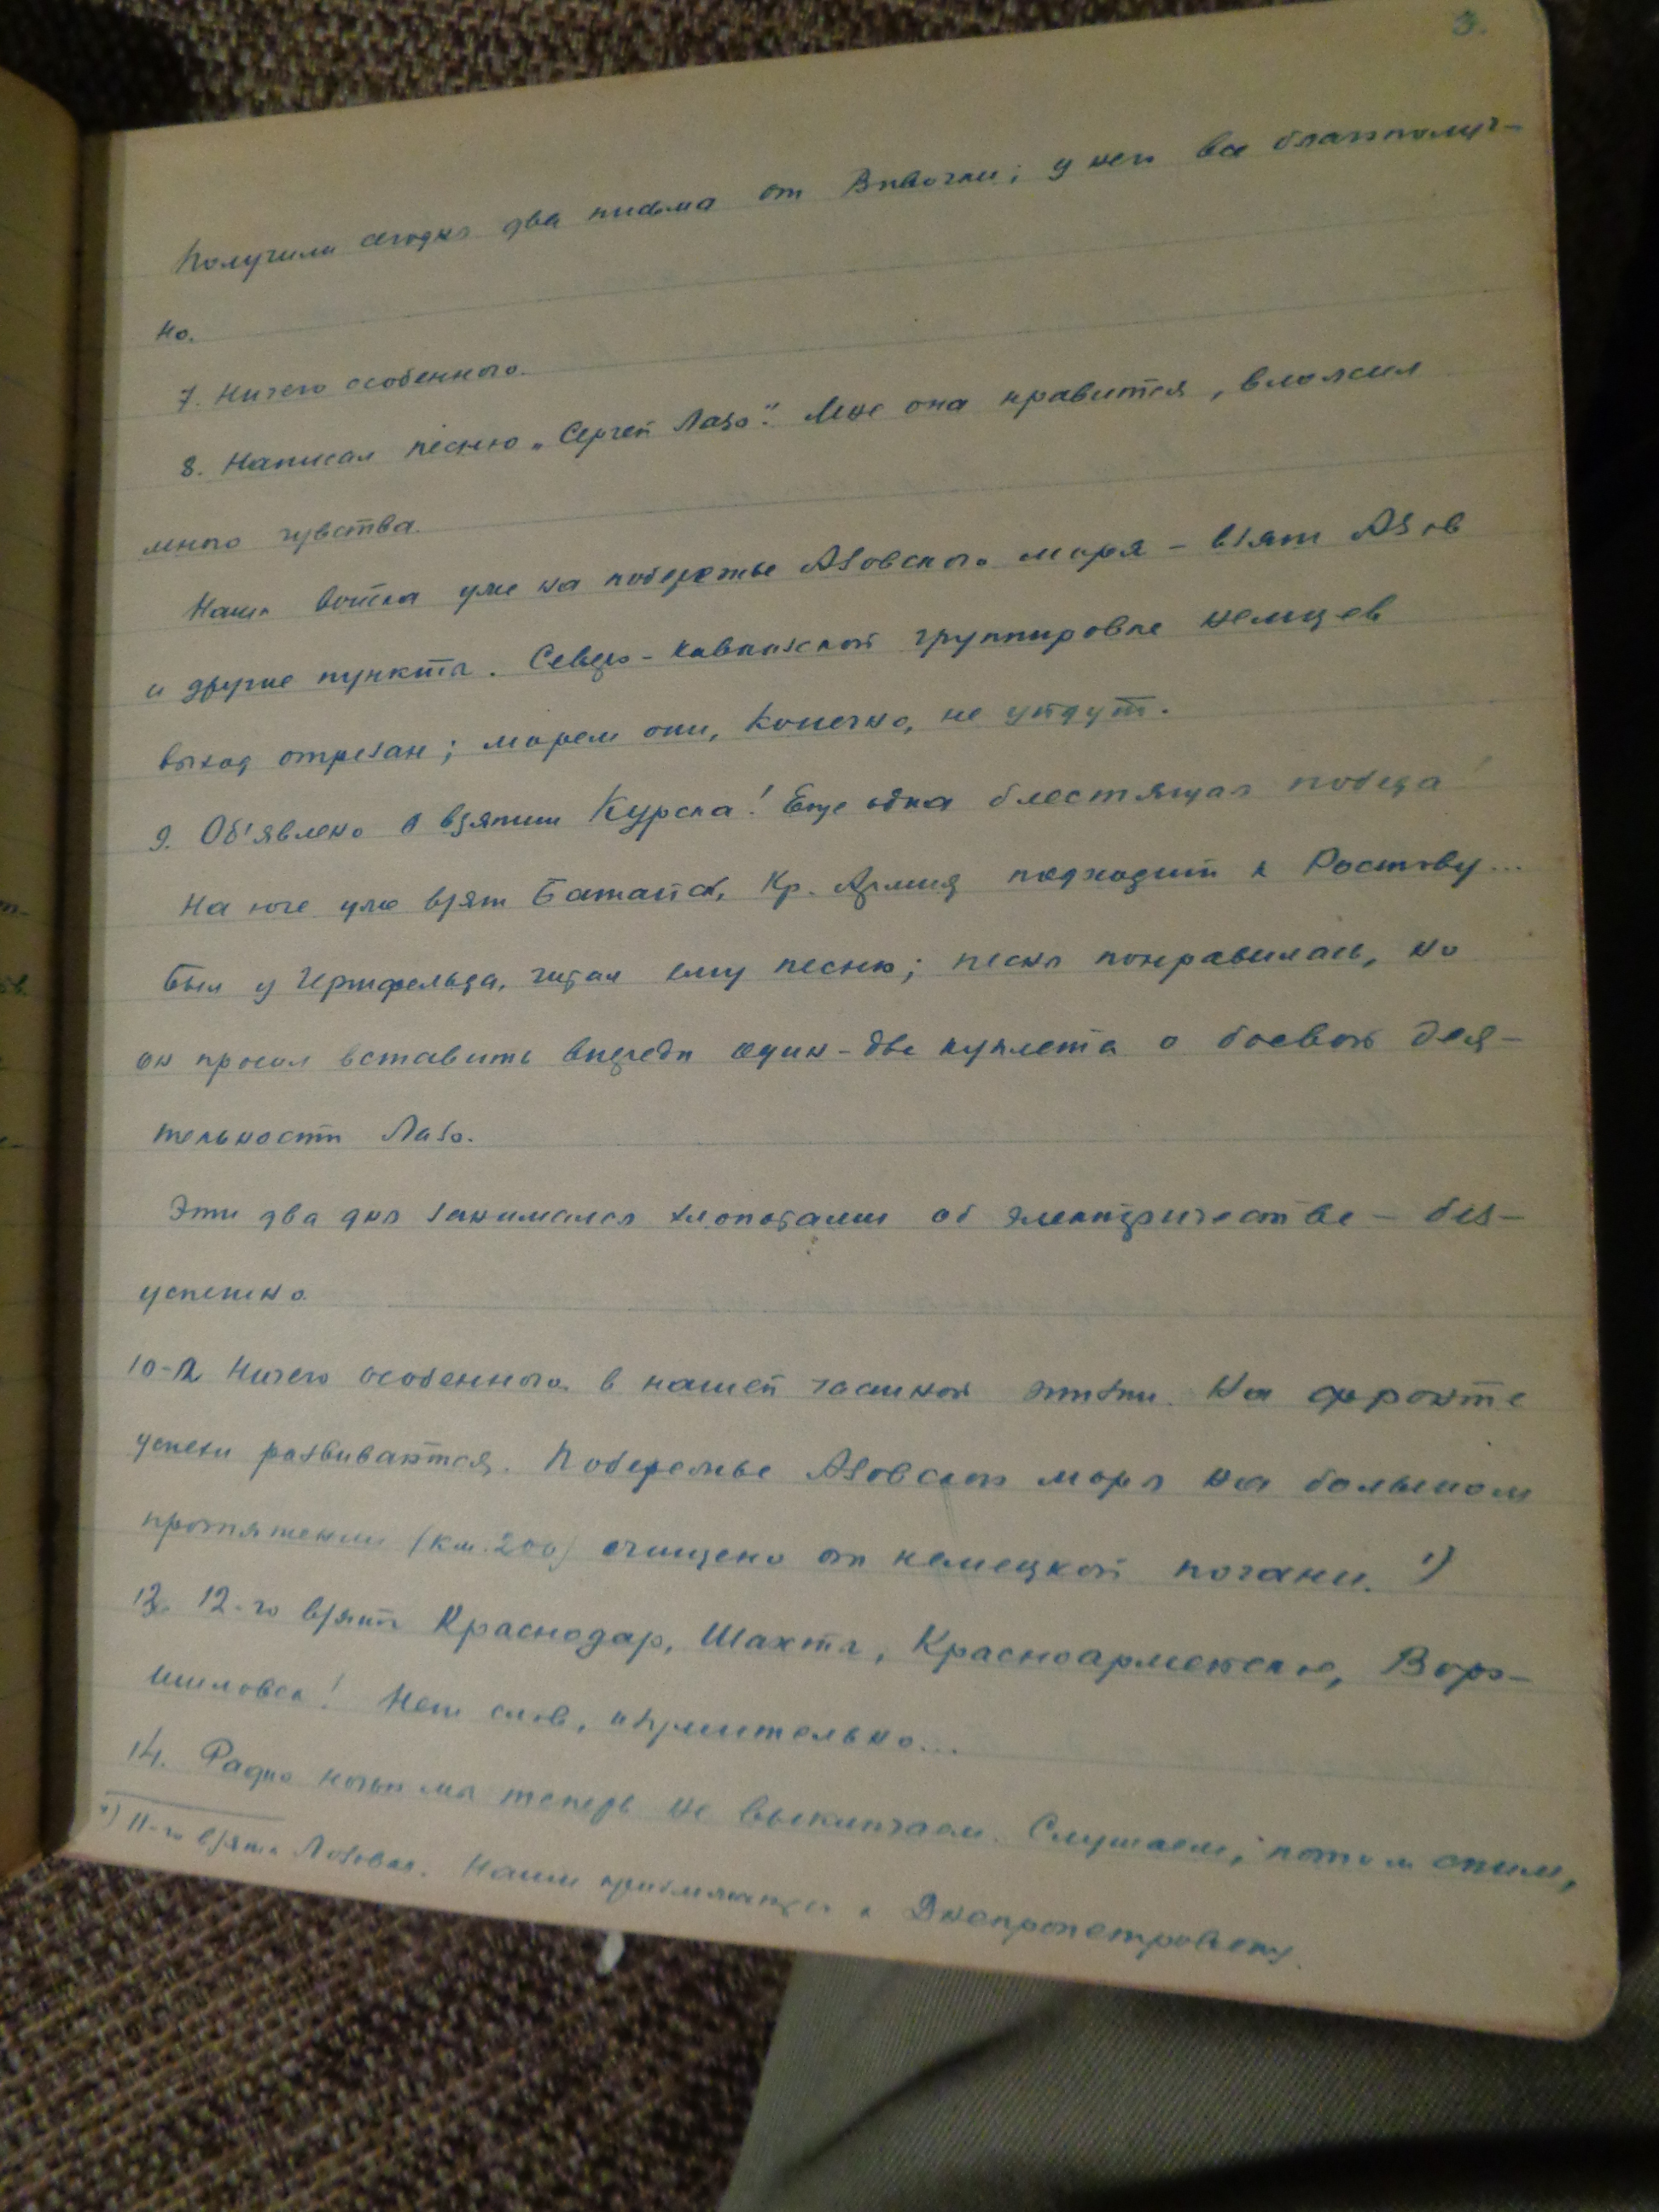 3.
Получили сегодня два письма от Вивочки; у него все благополуч-
но.
7. Ничего особенного.
8. Написал песню „Сергей Лазо". Мне она нравится, вложил
много чувства.
Наши войска уже на побережье Азовского моря – взят Азов
и другие пункты. Северо-кавказской группировке немцев
выход отрезан; морем они, конечно, не уйдут.
9. Об'явлено о взятии Курска! Еще одна блестящая победа!
На юге уже взят Батайск, Кр. Армия подходит к Ростову...
Был у Герцфельда, читал ему песню; песня понравилась, но
он просил вставить впереди один-два куплета о боевой дея-
тельности Лазо.
Эти два дня занимался хлопотами об электричестве – без-
успешно.
10-12 Ничего особенного в нашей частной жизни. На фронте
успехи развиваются. Побережье Азовского моря на большом
протяжении (км. 200) очищено от немецкой погани. ¹)
13. 12-го взяты Краснодар, Шахты, Красноармейское, Воро-
шиловск! Нет слов, изумительно...
14. Радио ночью мы теперь не выключаем. Слушаем, потом спим,
¹) 11-го взята Лозовая. Наши приближаются к Днепропетровску.